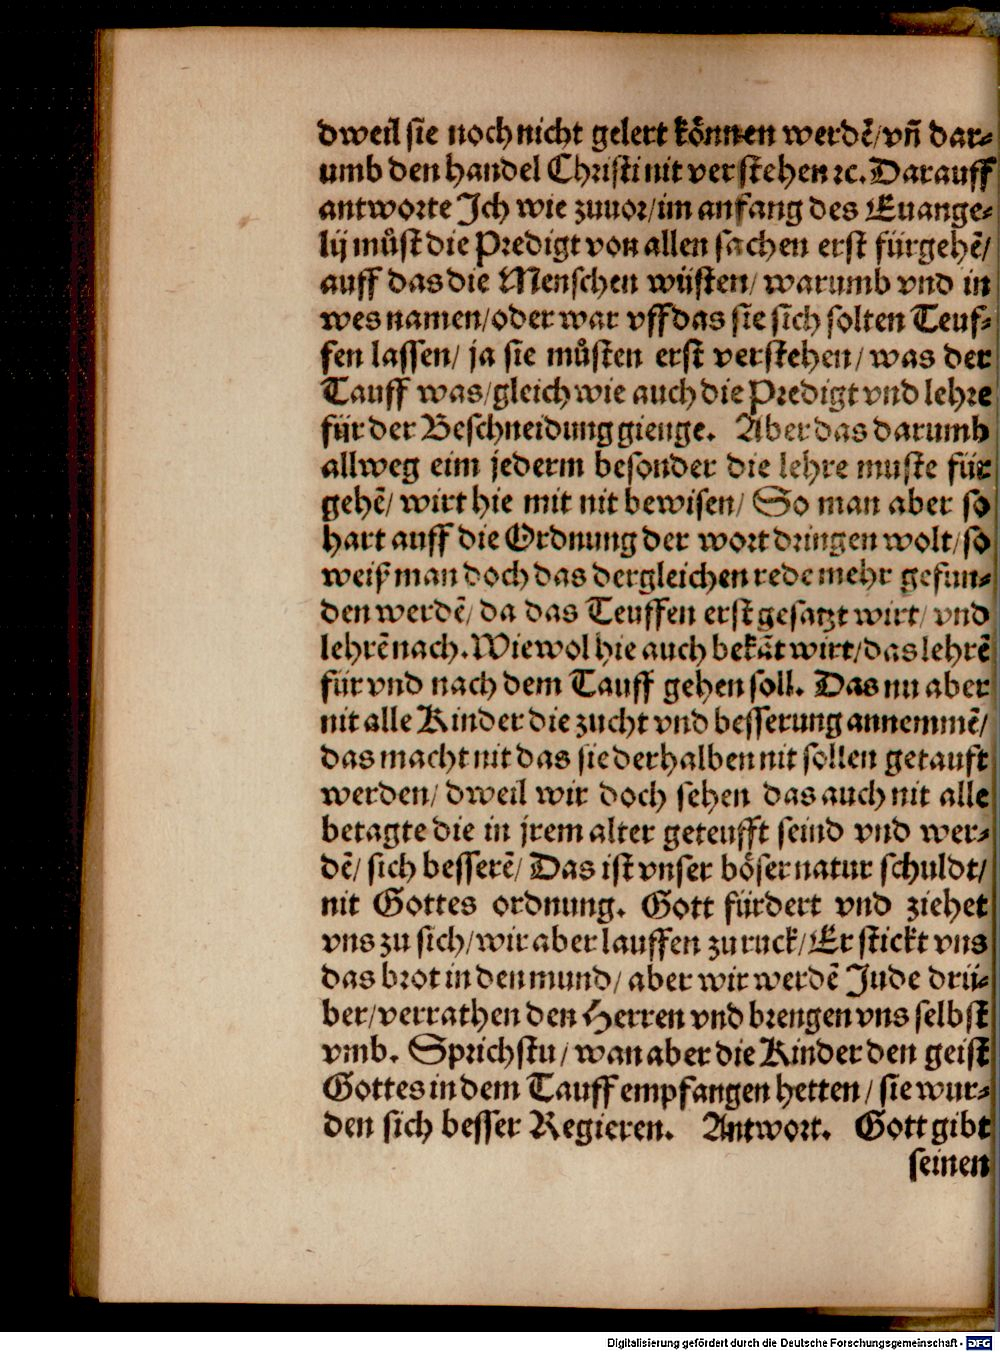 dweil sie noch nicht gelert koͤnnen werdē/vñ dar⸗
umb den handel Christi nit verstehen ꝛc. Darauff
antworte Ich wie zuuor/im anfang des Euange⸗
lij muͦst die Predigt von allen sachen erst fürgehē/
auff das die Menschen wüsten/ warumb vnd in
wes namen/oder war vff das sie sich solten Teuf⸗
fen lassen/ ja sie muͦsten erst verstehen/ was der
Tauff was/gleich wie auch die Predigt vnd lehre
für der Beschneidung gienge. Aber das darumb
allweg eim jederm besonder die lehre muste für
gehē/ wirt hie mit nit bewisen/ So man aber so
hart auff die Ordnung der wort dringen wolt/so
weiß man doch das dergleichen rede mehr gefun⸗
den werdē/ da das Teuffen erst gesatzt wirt/ vnd
lehrē nach. Wiewol hie auch bekāt wirt/das lehrē
für vnd nach dem Tauff gehen soll. Das nu aber
nit alle Kinder die zucht vnd besserung annemmē/
das macht nit das sie derhalben nit sollen getauft
werden/ dweil wir doch sehen das auch nit alle
betagte die in jrem alter geteufft seind vnd wer⸗
dē/ sich besserē/ Das ist vnser boͤser natur schuldt/
nit Gottes ordnung. Gott fürdert vnd ziehet
vns zu sich/wir aber lauffen zu ruck/Er stickt vns
das brot in den mund/ aber wir werdē Jude drü⸗
ber/verrathen den Herren vnd brengen vns selbst
vmb. Sprichstu/ wan aber die Kinder den geist
Gottes in dem Tauff empfangen hetten/ sie wur⸗
den sich besser Regieren. Antwort. Gott gibt
seinen
Digitalisierung gefördert durch die Deutsche Forschungsgemeinschaft - DFG